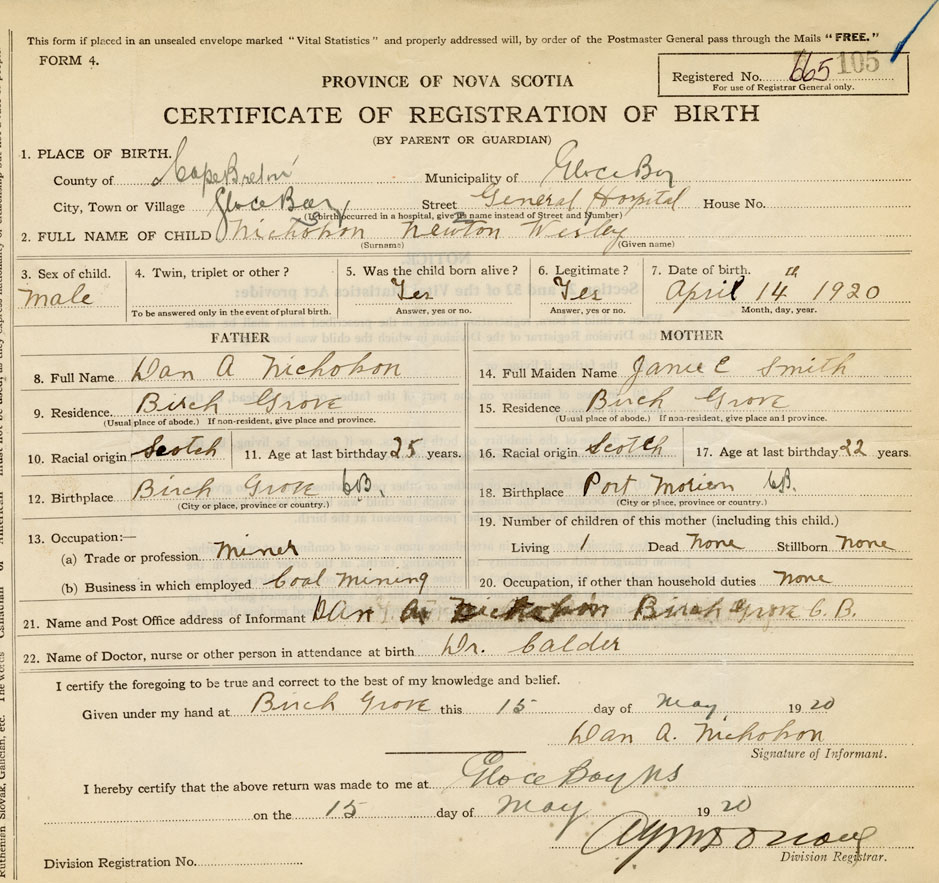 This form if placed in an unsealed envelope marked "Vital Statistics" and properly addressed will, by order of the Postmaster General pass through the Mails "FREE."
FORM 4.
Registered No. 665 105
For use of Registrar General only.
PROVINCE OF NOVA SCOTIA
CERTIFICATE OF REGISTRATION OF BIRTH
(BY PARENT OR GUARDIAN)
1. PLACE OF BIRTH.
County of Cape Breton Municipality of Glace Bay
City, Town or Village Glace Bay Street General Hospital House No.
(If birth occurred in a hospital, give its name instead of Street and Number)
2. FULL NAME OF CHILD Nicholson Newton Wesley
(Surname) (Given name)
3. Sex of child. 4. Twin, triplet or other? 5. Was the child born alive? 6. Legitimate? 7. Date of birth.
male Yes Yes April 14th 1920
To be answered only in the event of plural birth. Answer, yes or no. Answer, yes or no. Month, day, year.
FATHER
8. Full Name Dan A Nicholson
9. Residence. Birch Grove
(Usual place of abode.) If non-resident, give place and province.
10. Racial origin Scotch 11. Age at last birthday 25 years.
12. Birthplace Birch Grove CB.
(City or place, province or country.)
13. Occupation:—
(a) Trade or profession Miner
(b) Business in which employed Coal Mining
MOTHER
14. Full Maiden Name Janie C Smith
15. Residence Birch Grove
(Usual place of abode.) If non-resident, give place and province.
16. Racial origin Scotch 17. Age at last birthday 22 years.
18. Birthplace Port Morien CB.
(City or place, province or country.)
19. Number of children of this mother (including this child.)
Living 1 Dead None Stillborn None
20. Occupation, if other than household duties None
21. Name and Post Office address of Informant Dan A Nicholson Birch Grove C.B.
22. Name of Doctor, nurse or other person in attendance at birth Dr. Calder
I certify the foregoing to be true and correct to the best of my knowledge and belief.
Given under my hand at Birch Grove this 15 day of May 1920
Dan A. Nicholson
Signature of Informant.
I hereby certify that the above return was made to me at Glace Bay NS
on the 15 day of May 1920
Division Registrar.
Division Registration No.